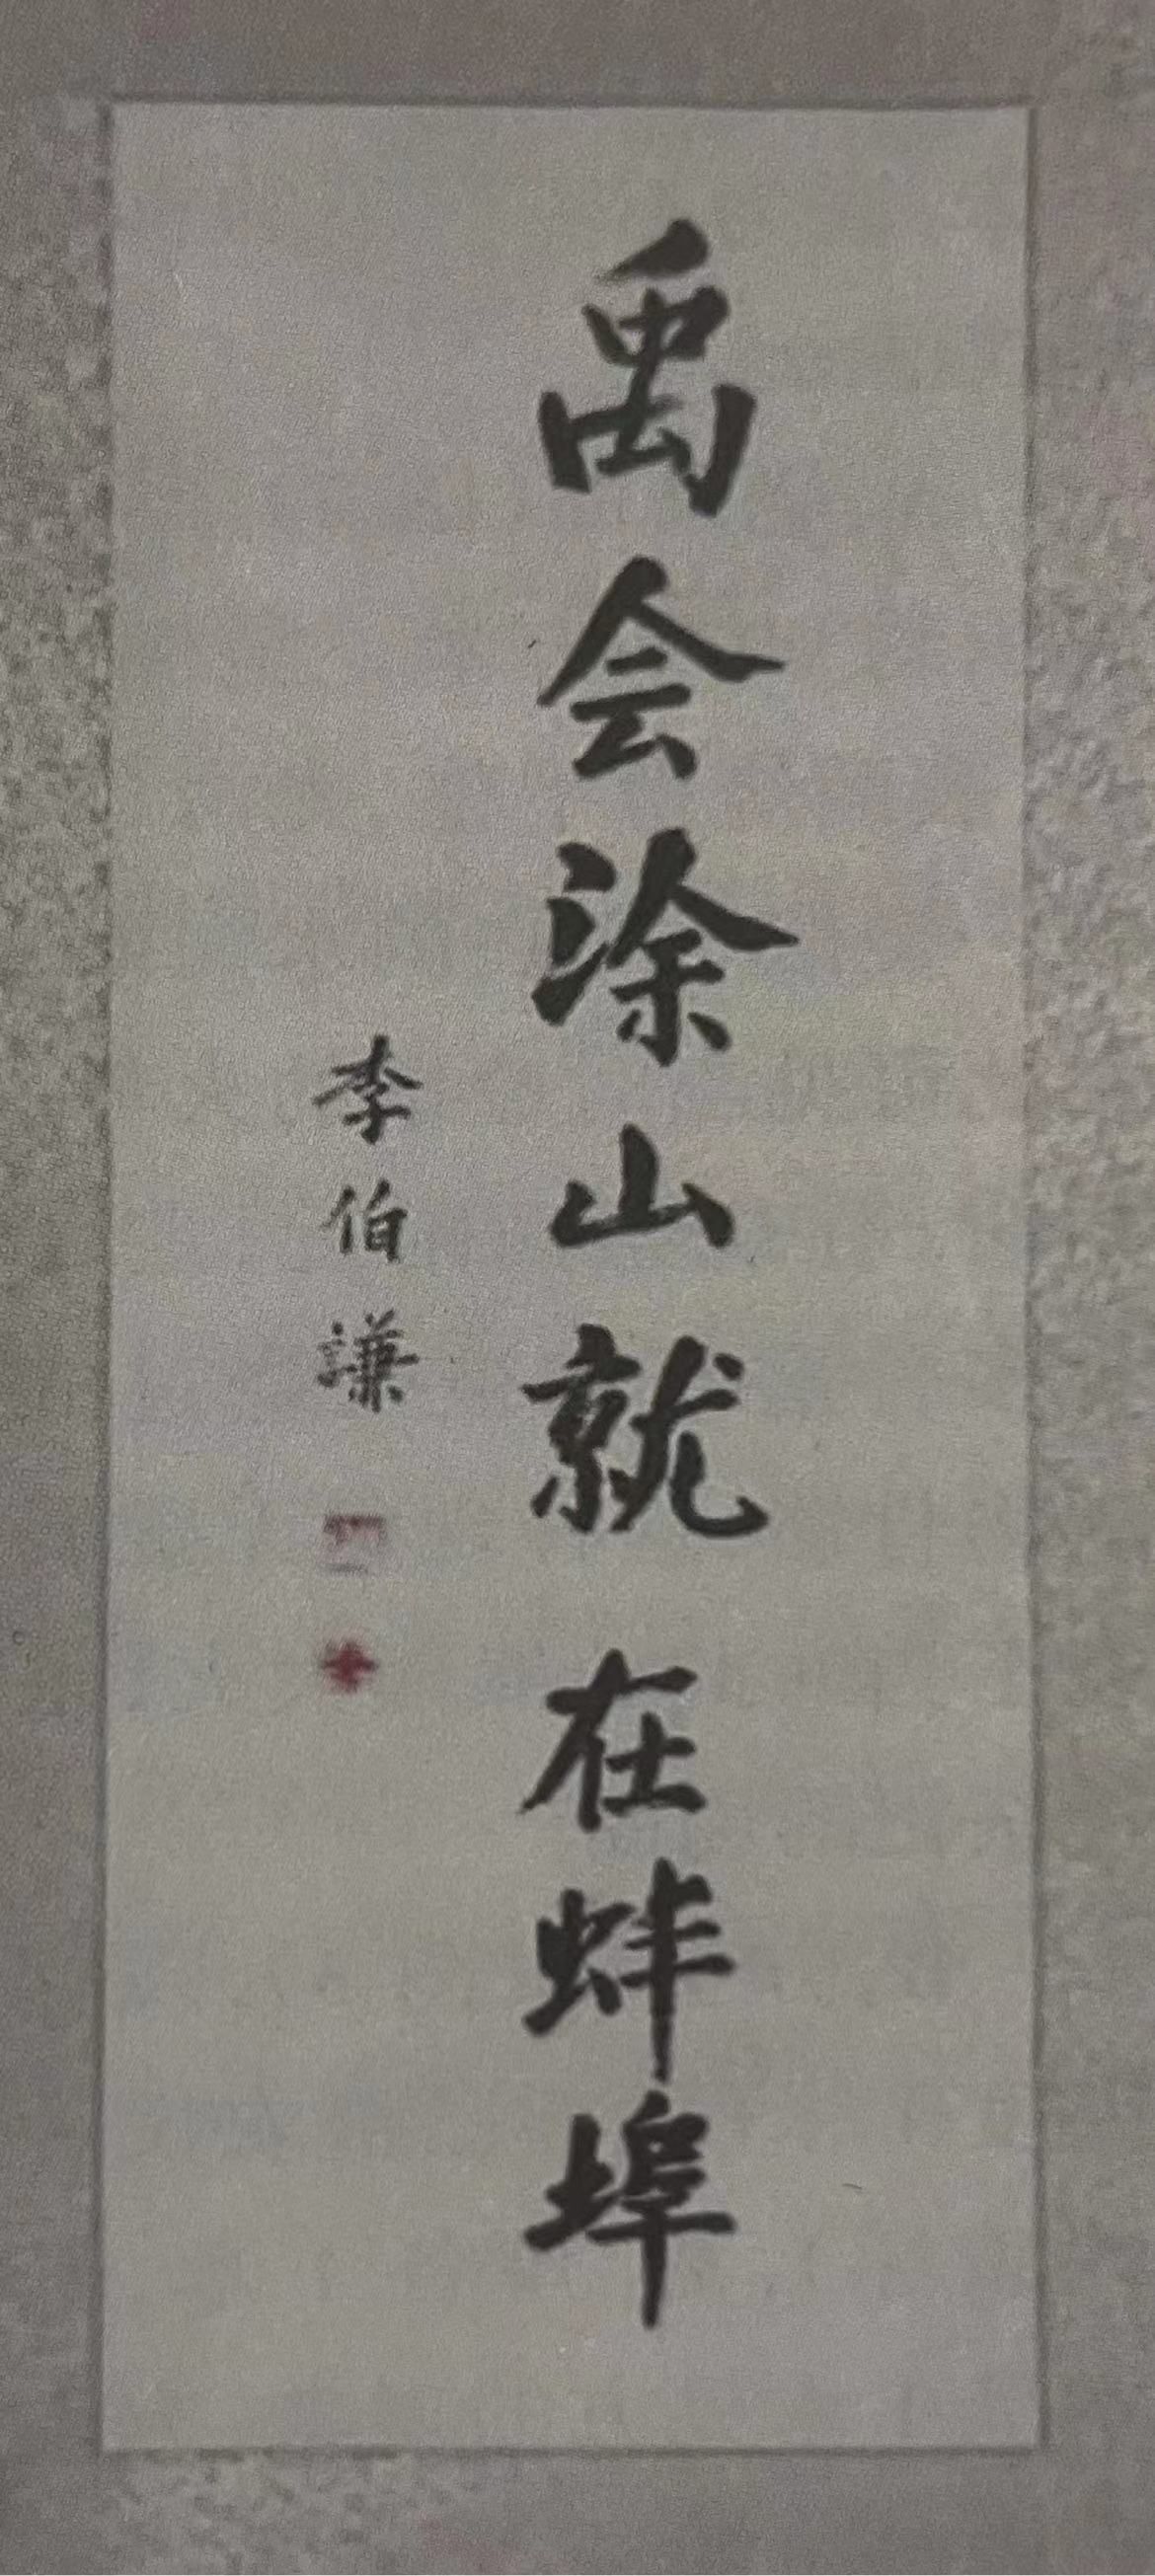 禹会涂山就在蚌埠
李伯謙